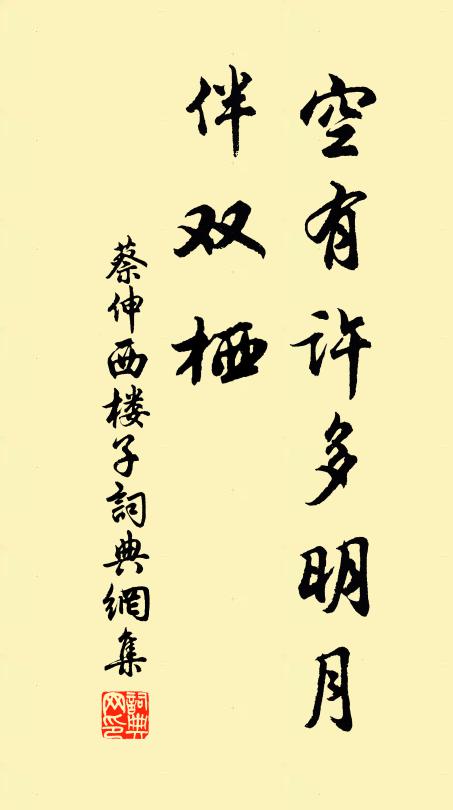 空有许多明月
伴双栖
蔡伸西楼子詞典網集
詞典网印